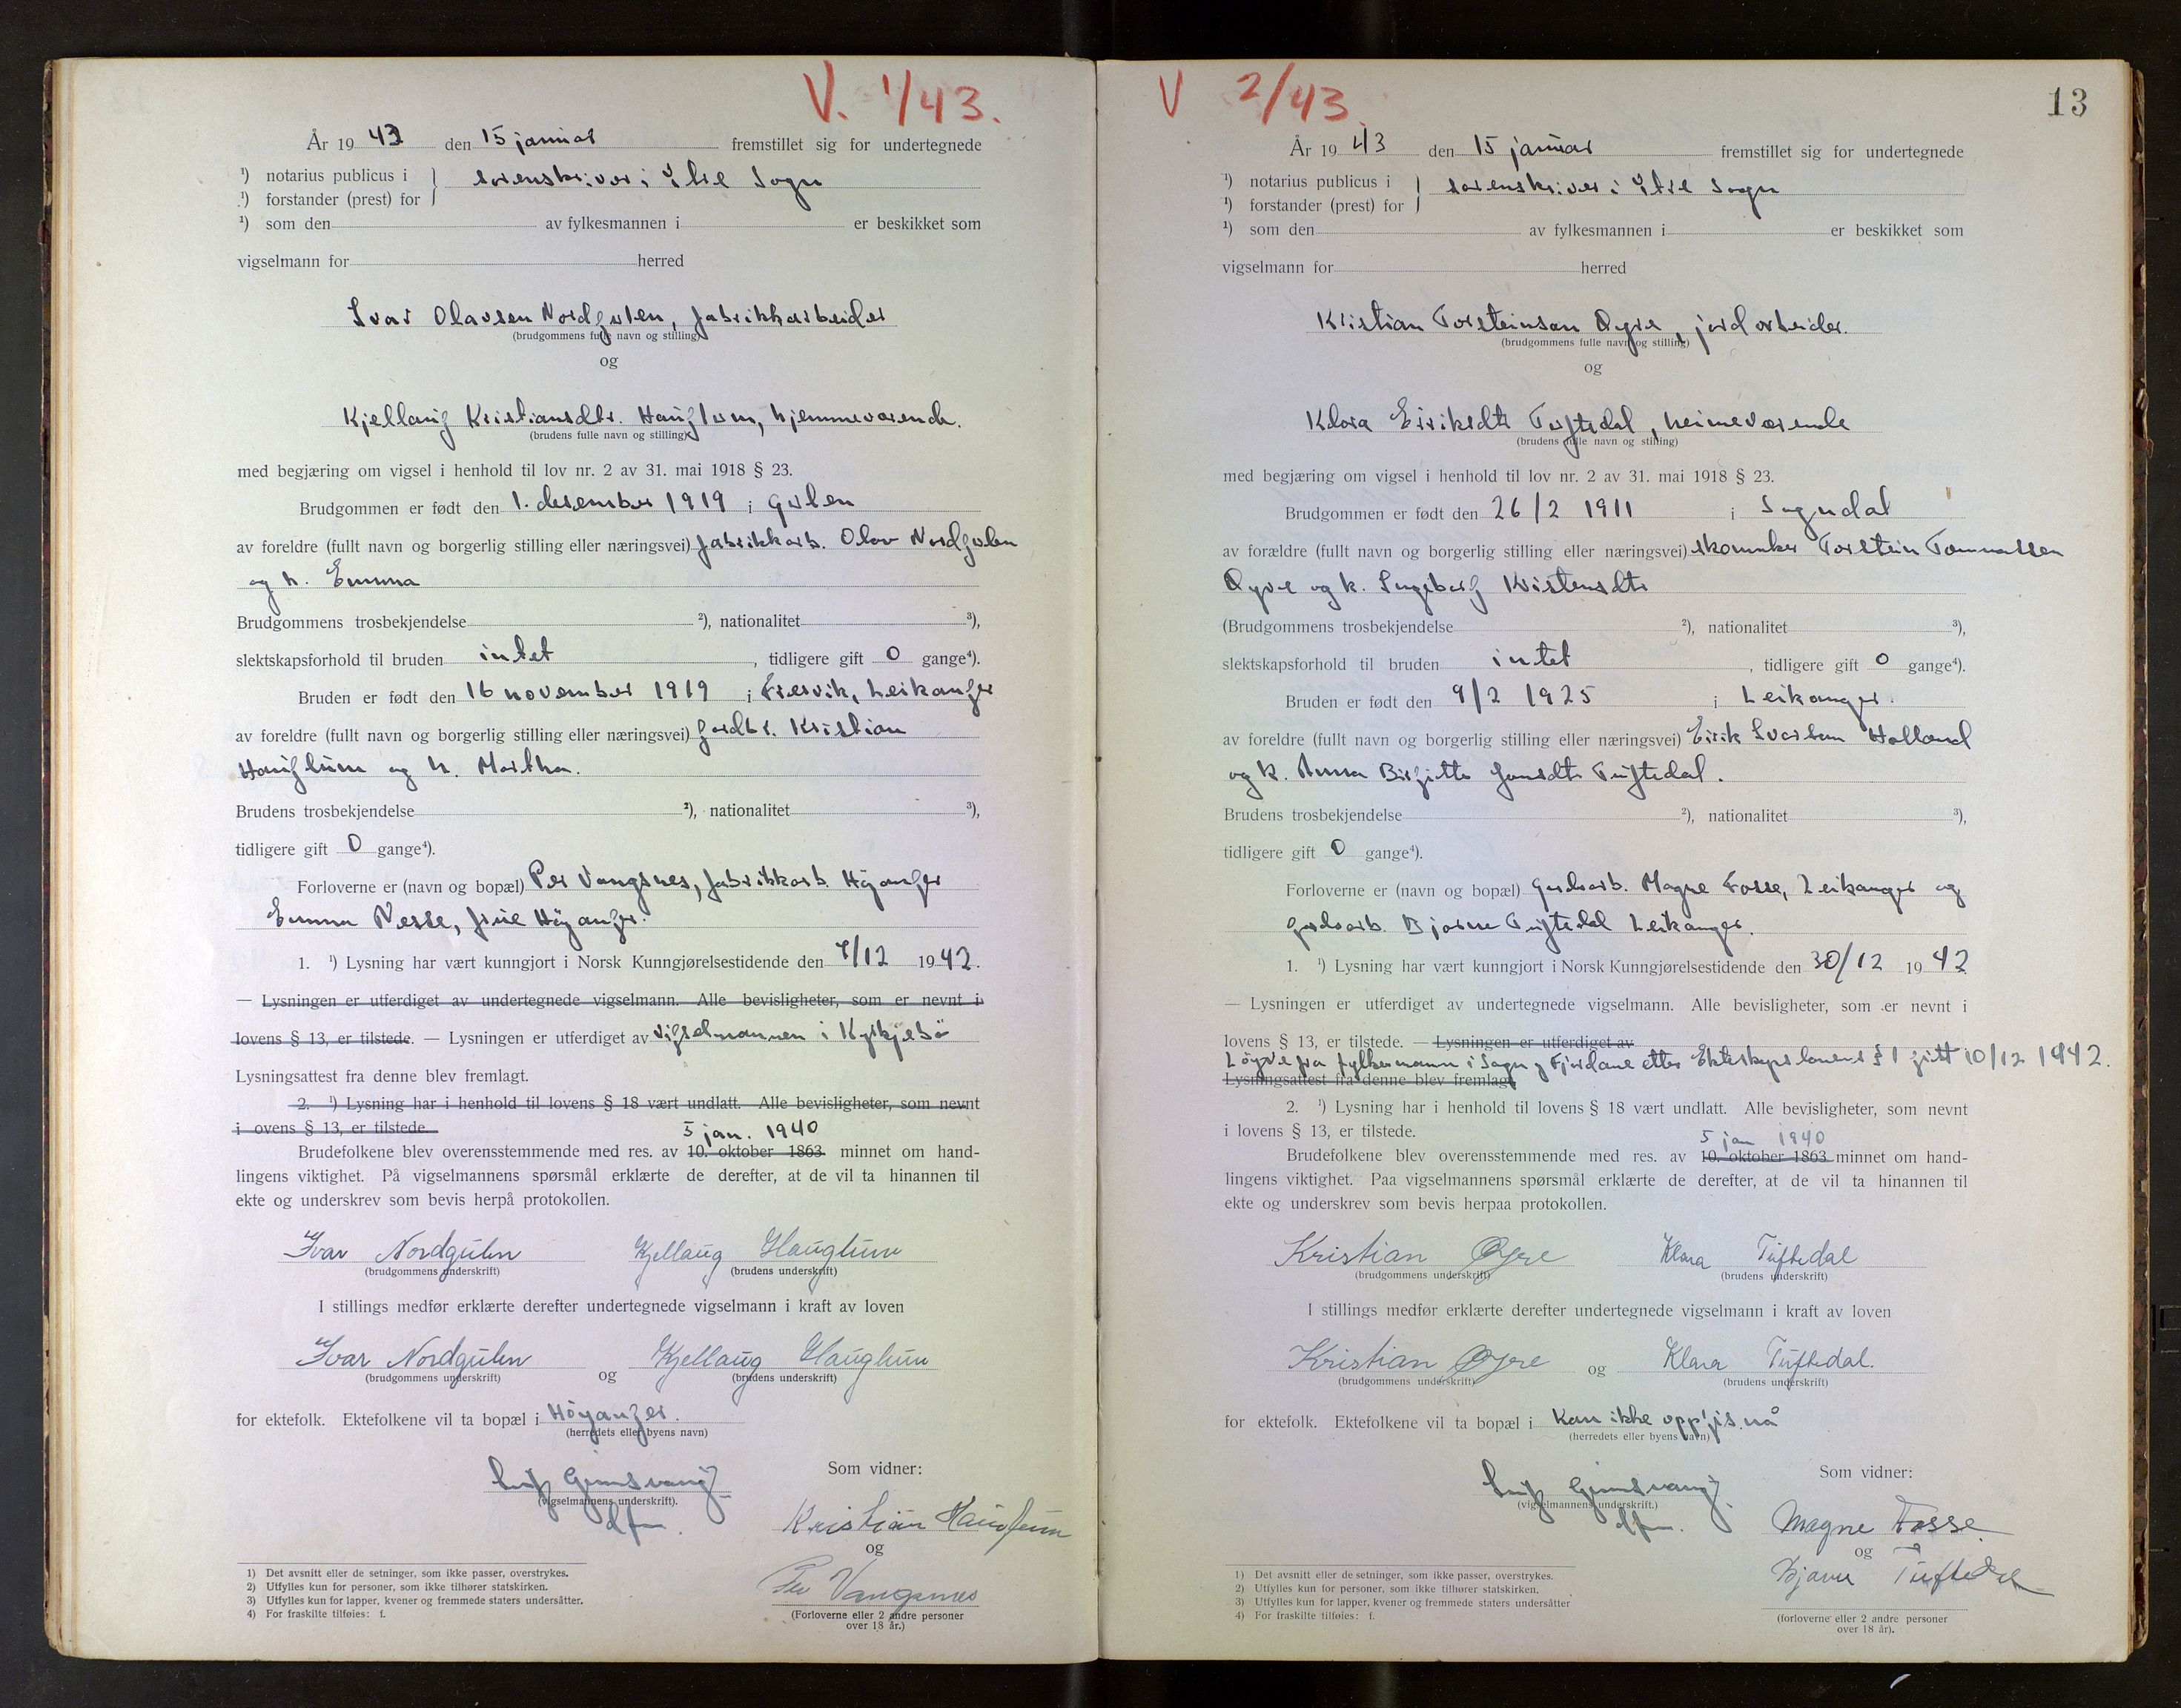 V. 1/43.
År 19 43 den 15 januar fremstillet sig for undertegnede
¹) notarius publicus i
¹) forstander (prest) for
sorenskriver i Ytre Sogn
¹) som den av fylkesmannen i er beskikket som
vigselmann for herred
Ivar Olavsen Nordgulen, fabrikkarbeider
(brudgommens fulle navn og stilling)
og
Kjellaug Kristiansdtr. Hauglum, hjemmeværende.
(brudens fulle navn og stilling)
med begjæring om vigsel i henhold til lov nr. 2 av 31. mai 1918 § 23.
Brudgommen er født den 1. desember 1919 i Gulen
av foreldre (fullt navn og borgerlig stilling eller næringsvei) fabrikkarb. Olav Nordgulen
og h. Emma
Brudgommens trosbekjendelse ²), nationalitet ³),
slektskapsforhold til bruden intet, tidligere gift 0 gange⁴).
Bruden er født den 16 november 1919 i Fresvik, Leikanger
av foreldre (fullt navn og borgerlig stilling eller næringsvei) gardbr. Kristian
Hauglum og h. Martha.
Brudens trosbekjendelse ²), nationalitet ³),
tidligere gift 0 gange⁴).
Forloverne er (navn og bopæl) Per Vangsnes, fabrikkarb. Höyanger
Emma Nesse, frue Höyanger.
1. ¹) Lysning har vært kunngjort i Norsk Kunngjørelsestidende den 7/12 1942.
— Lysningen er utferdiget av undertegnede vigselmann. Alle bevisligheter, som er nevnt i
lovens § 13, er tilstede. — Lysningen er utferdiget av vigselmannen i Kyrkjebö
Lysningsattest fra denne blev fremlagt.
2. ¹) Lysning har i henhold til lovens § 18 vært undlatt. Alle bevisligheter, som nevnt
i ovens § 13, er tilstede.
5 jan. 1940
Brudefolkene blev overensstemmende med res. av 10. oktober 1863 minnet om hand-
lingens viktighet. På vigselmannens spørsmål erklærte de derefter, at de vil ta hinannen til
ekte og underskrev som bevis herpå protokollen.
Ivar Nordgulen Kjellaug Hauglum
(brudgommens underskrift) (brudens underskrift)
I stillings medfør erklærte derefter undertegnede vigselmann i kraft av loven
Ivar Nordgulen og Kjellaug Hauglum
(brudgommens underskrift) (brudens underskrift)
for ektefolk. Ektefolkene vil ta bopæl i Höyanger.
(herredets eller byens navn)
Som vidner:
(vigselmannens underskrift).
Kristian Hauglum
og
Per Vangsnes
(Forloverne eller 2 andre personer
over 18 år.)
1) Det avsnitt eller de setninger, som ikke passer, overstrykes.
2) Utfylles kun for personer, som ikke tilhører statskirken.
3) Utfylles kun for lapper, kvener og fremmede staters undersåtter.
4) For fraskilte tilføies: f.
V 2/43
13
År 19 43 den 15 januar fremstillet sig for undertegnede
¹) notarius publicus i
¹) forstander (prest) for
sorenskriver i Ytre Sogn
¹) som den av fylkesmannen i er beskikket som
vigselmann for herred
Kristian Torsteinson Øyre, jordarbeider.
(brudgommens fulle navn og stilling)
og
Klara Eiriksdtr Tuftedal, heimeværende
(brudens fulle navn og stilling)
med begjæring om vigsel i henhold til lov nr. 2 av 31. mai 1918 § 23.
Brudgommen er født den 26/2 1911 i Sogndal
av forældre (fullt navn og borgerlig stilling eller næringsvei) skomaker Torstein Tommassen
Øyre og k. Ingeborg Kristensdtr
(Brudgommens trosbekjendelse ²), nationalitet ³),
slektskapsforhold til bruden intet, tidligere gift 0 gange⁴).
Bruden er født den 9/2 1925 i Leikanger.
av foreldre (fullt navn og borgerlig stilling eller næringsvei) Eirik Ivarsen Holland
og k. Anna Birgitte Jonsdtr Tuftedal.
Brudens trosbekjendelse ²), nationalitet ³),
tidligere gift 0 gange⁴).
Forloverne er (navn og bopæl) gardsarb. Magne Fosse, Leikanger og
gardsarb. Bjarne Tuftedal Leikanger.
1. ¹) Lysning har vært kunngjort i Norsk Kunngjørelsestidende den 30/12 1942
— Lysningen er utferdiget av undertegnede vigselmann. Alle bevisligheter, som er nevnt i
lovens § 13, er tilstede. — Lysningen er utferdiget av
Löyve fra fylkesmann i Sogn og Fjordane etter Ekteskapslovens § 1 gitt 10/12 1942.
Lysningsattest fra denne blev fremlagt
2. ¹) Lysning har i henhold til lovens § 18 vært undlatt. Alle bevisligheter, som nevnt
i lovens § 13, er tilstede.
5 jan 1940
Brudefolkene blev overensstemmende med res. av 10. oktober 1863 minnet om hand-
lingens viktighet. Paa vigselmannens spørsmål erklærte de derefter, at de vil ta hinannen til
ekte og underskrev som bevis herpaa protokollen.
Kristian Øyre Klara Tuftedal
(brudgommens underskrift) (brudens underskrift)
I stillings medfør erklærte derefter undertegnede vigselmann i kraft av loven
Kristian Øyre og Klara Tuftedal.
(brudgommens underskrift) (brudens underskrift)
for ektefolk. Ektefolkene vil ta bopæl i Kan ikke oppgis nå
(herredets eller byens navn)
Som vidner:
(vigselmannens underskrift.)
Magne Fosse
og
Bjarne Tuftedal
(forloverne eller 2 andre personer
over 18 år).
1) Det avsnitt eller de setninger, som ikke passer, overstrykes.
2) Utfylles kun for personer, som ikke tilhører statskirken.
3) Utfylles kun for lapper, kvener og fremmede staters undersåtter
4) For fraskilte tilføies: f.